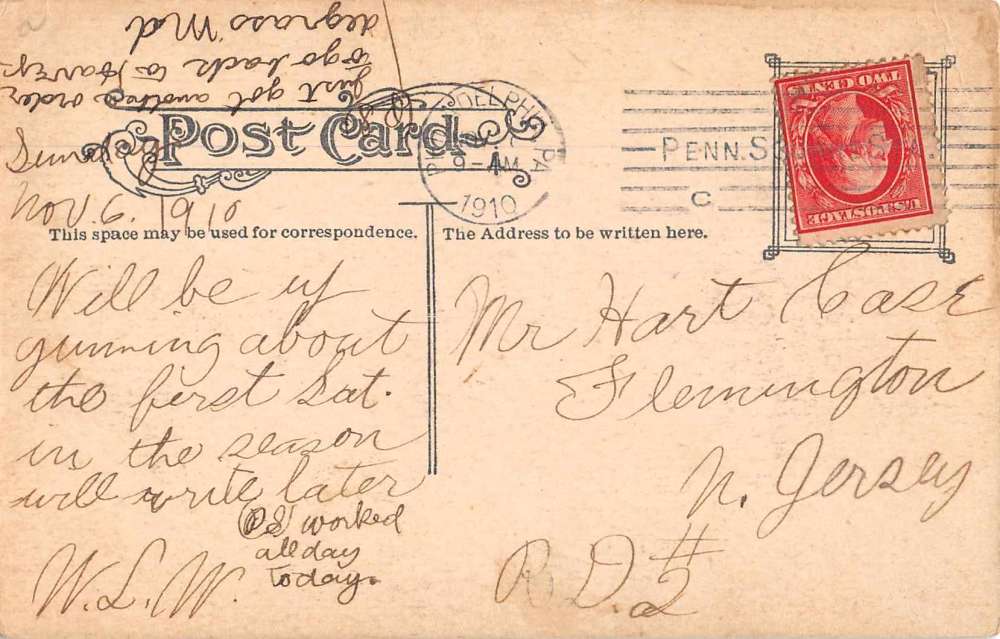 Just got another order
to go back to Havre
degrass Md
Post Card
Sunday
Nov. 6. 1910
This space may be used for correspondence.
Will be up
gunning about
the first Sat.
in the season
will write later
W.L.W.
PS I worked
all day
today.
PHILADELPHIA PA
9-AM
1910
PENN. SQUARE
C
TWO CENTS
U.S. POSTAGE
The Address to be written here.
Mr Hart Case
Flemington
N. Jersey
R.D. #2